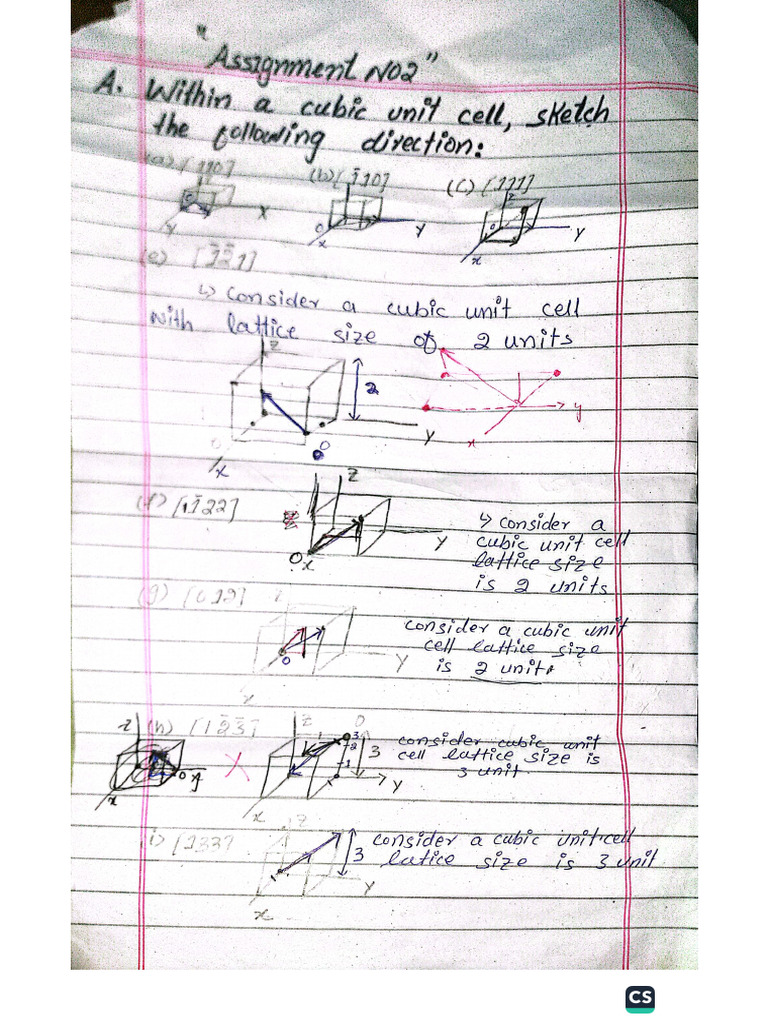 "Assignment No2"
A. Within a cubic unit cell, sketch
the following direction:
(a) [110] (b) [1̄10] (c) [111]
z
0 x y
0 x y
z 0 x y
(e) [1̄2̄1]
↳ consider a cubic unit cell
with lattice size of 2 units
z
2
y
0
x
y
x
(f) [1̄22]
z
y
0
x
↳ consider a
cubic unit cell
lattice size
is 2 units
(g) [012]
consider a cubic unit
cell lattice size
is 2 unit.
0
y
(h) [12̄3̄]
z
0 y
x
X
z 0
3
2
1
3
y
x
consider cubic unit
cell lattice size is
3 unit
(i) [133]
z
3
y
x
consider a cubic unit cell
lattice size is 3 unit
CS